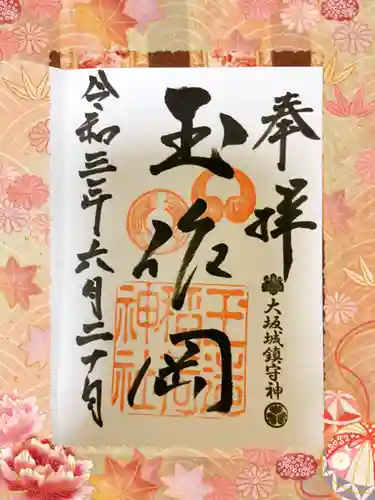 奉拝
大坂城鎮守神
玉造岡
玉造稲荷神社
令和三年六月二十日